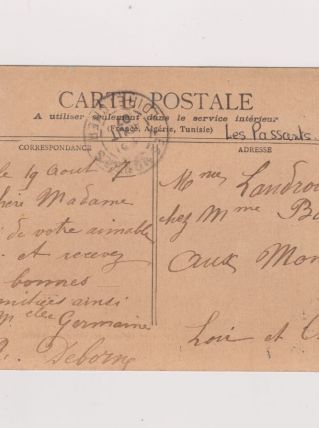 CARTE POSTALE
A utiliser seulement dans le service intérieur
(France, Algérie, Tunisie)
Les Passants.
CORRESPONDANCE
ADRESSE
le 19 août 7
chère Madame
de votre aimable
et recevez
bonnes
amitiés ainsi
Germaine
Deborne
Mmes Landrou
chez Mme
aux Mon
Loir et C